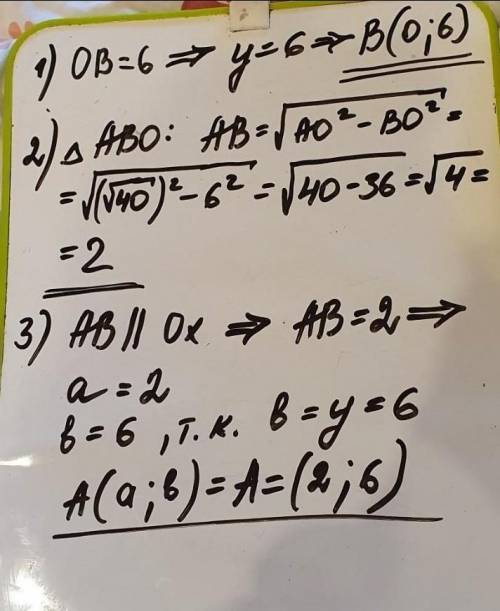 1) OB=6 ⇒ y=6 ⇒ B(0;6)
2) △ ABO: AB=√(AO²-BO²)=
=√((√40)²-6²)=√(40-36)=√4=
=2
3) AB || Ox ⇒ AB=2 ⇒
a=2
в=6, т.к. в=y=6
A(a;в)=A=(2;6)